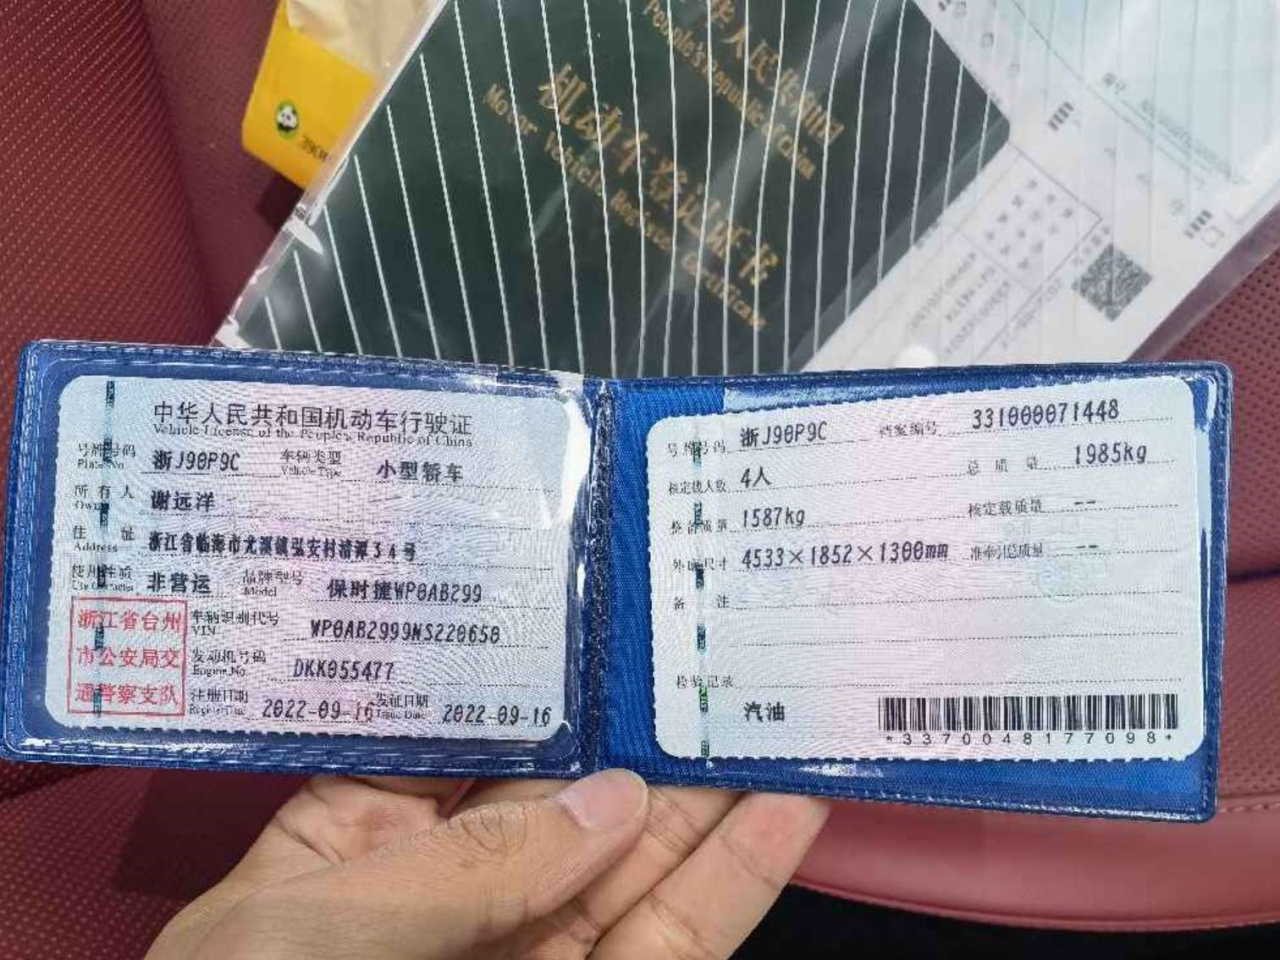 中华人民共和国
People's Republic of China
机动车登记证书
Motor Vehicle Register Certificate
中华人民共和国机动车行驶证
Vehicle License of the People's Republic of China
号牌号码 浙J90P9C 车辆类型 小型轿车
Plate No. Vehicle Type
所有人 谢远洋
Owner
住址 浙江省临海市尤溪镇弘安村清潭34号
Address
使用性质 非营运 品牌型号 保时捷WP0AB299
Use Character Model
浙江省台州
市公安局交
通警察支队
车辆识别代号 WP0AB2999NS220650
VIN
发动机号码 DKK055477
Engine No.
注册日期 2022-09-16 发证日期 2022-09-16
Register Date Issue Date
号牌号码 浙J90P9C 档案编号 331000071448
核定载人数 4人 总质量 1985kg
整备质量 1587kg 核定载质量 --
外廓尺寸 4533×1852×1300mm 准牵引总质量 --
备注
检验记录
汽油
*3370048177098*